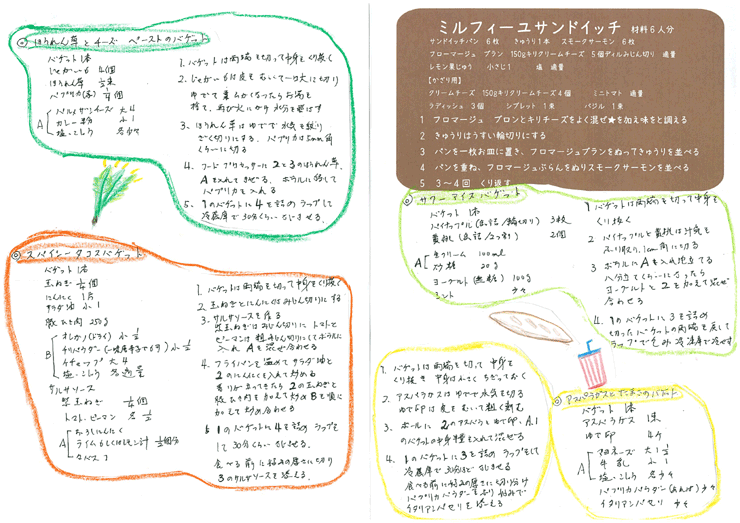 ◎ほうれん草とチーズペーストのバゲット
バゲット 1本
じゃがいも 4個
ほうれん草 1/2束
パプリカ(赤) 1/4個
A
パルメザンチーズ 大4
カレー粉 小1
塩・こしょう 各少々
1. バゲットは両端を切って中身をくり抜く
2. じゃがいもは皮をむいて一口大に切り
ゆでて柔らかくなったらお湯を
捨て、再び火にかけ水分を飛ばす
3、ほうれん草はゆでて水気を絞り
ざく切りにする、パプリカは5mm角
くらいに切る
4. フードプロセッサーに2と3のほうれん草、
Aを入れてまぜる、ボールに移して
パプリカを入れる
5、1のバゲットに4を詰めラップして
冷蔵庫で30分くらいねじませる、
◎スパイシータコスバゲット
バゲット 1本
玉ねぎ 1/2個
にんにく 1片
サラダ油 小1
豚ひき肉 250g
B
オレガノ(ドライ) 小1/2
チリパウダー(一味唐辛子でも可) 小1/2
ケチャップ 大4
塩・こしょう 各適量
サルサソース
紫玉ねぎ 1/8個
トマト、ピーマン 各1/2
A
おろしにんにく
ライムもしくはレモン汁 1/2個分
タバスコ
1. バゲットは両端を切って中身をくり抜く
2. 玉ねぎとにんにくはみじん切りにする
3. サルサソースを作る
紫玉ねぎはみじん切りに トマトと
ピーマンは粗みじん切りにしてボウルに
入れ Aを混ぜ合わせる
4. フライパンを温めてサラダ油と
2のにんにくを入れて炒める
香りが立ってきたら2の玉ねぎと
豚ひき肉を加えて炒めBを順に
加えて炒め合わせる
5 1のバゲットに4を詰めラップを
して30分くらいねじませる、
食べる前に好みの厚さに切り
3のサルサソースを添える、
ミルフィーユサンドイッチ 材料6人分
サンドイッチパン 6枚 きゅうり1本 スモークサーモン 6枚
フロマージュ ブラン 150gキリクリームチーズ 5個ディルみじん切り 適量
レモン果じゅう 小さじ1 塩 適量
【かざり用】
クリームチーズ 150gキリクリームチーズ4個 ミニトマト 適量
ラディッシュ 3個 シブレット 1束 バジル 1束
1 フロマージュ ブロンとキリチーズをよく混ぜ★を加え味をと調える
2 きゅうりはうすい輪切りにする
3 パンを一枚お皿に置き、フロマージュブランをぬってきゅうりを並べる
4 パンを重ね、フロマージュぶらんをぬりスモークサーモンを並べる
5 3～4回 くり返す
◎サワーアイスバゲット
バゲット 1本
パイナップル(缶詰/輪切り) 3枚
黄桃(缶詰/2つ割) 2個
A
生クリーム 100ml
砂糖 20g
ヨーグルト(無糖) 100g
ミント 少々
1 バゲットは両端を切って中身を
くり抜く
2 パイナップルと黄桃は汁気を
ふり取り、1cm角に切る
3 ボールにAを入れ泡立てる
八分立てくらいになったら
ヨーグルトと2を加えて混ぜ
合わせる
4. 1のバゲットに3を詰め
切ったバゲットの両端を戻して
ラップで包み冷凍庫で冷やす
1. バゲットは両端を切って中身を
くり抜き中身は小さくちぎっておく
2. アスパラガスはゆでて水気を切る
ゆで卵は皮をむいて粗く刻む
3. ボールに2のアスパラとゆで卵、A、1
のバゲットの中身を入れて混ぜる
4. 1のバゲットに3を詰めラップをして
冷蔵庫で30分ほどねじませる
食べる前に好みの厚さに切り分け
パプリカパウダーをふり好みで
イタリアンパセリを添える
◎アスパラガスとたまごのバゲット
バゲット 1本
アスパラガス 1束
ゆで卵 4ケ
A
マヨネーズ 大1 1/2
牛乳 小1
塩・こしょう 各少々
パプリカパウダー(あれば) 少々
イタリアンパセリ 少々